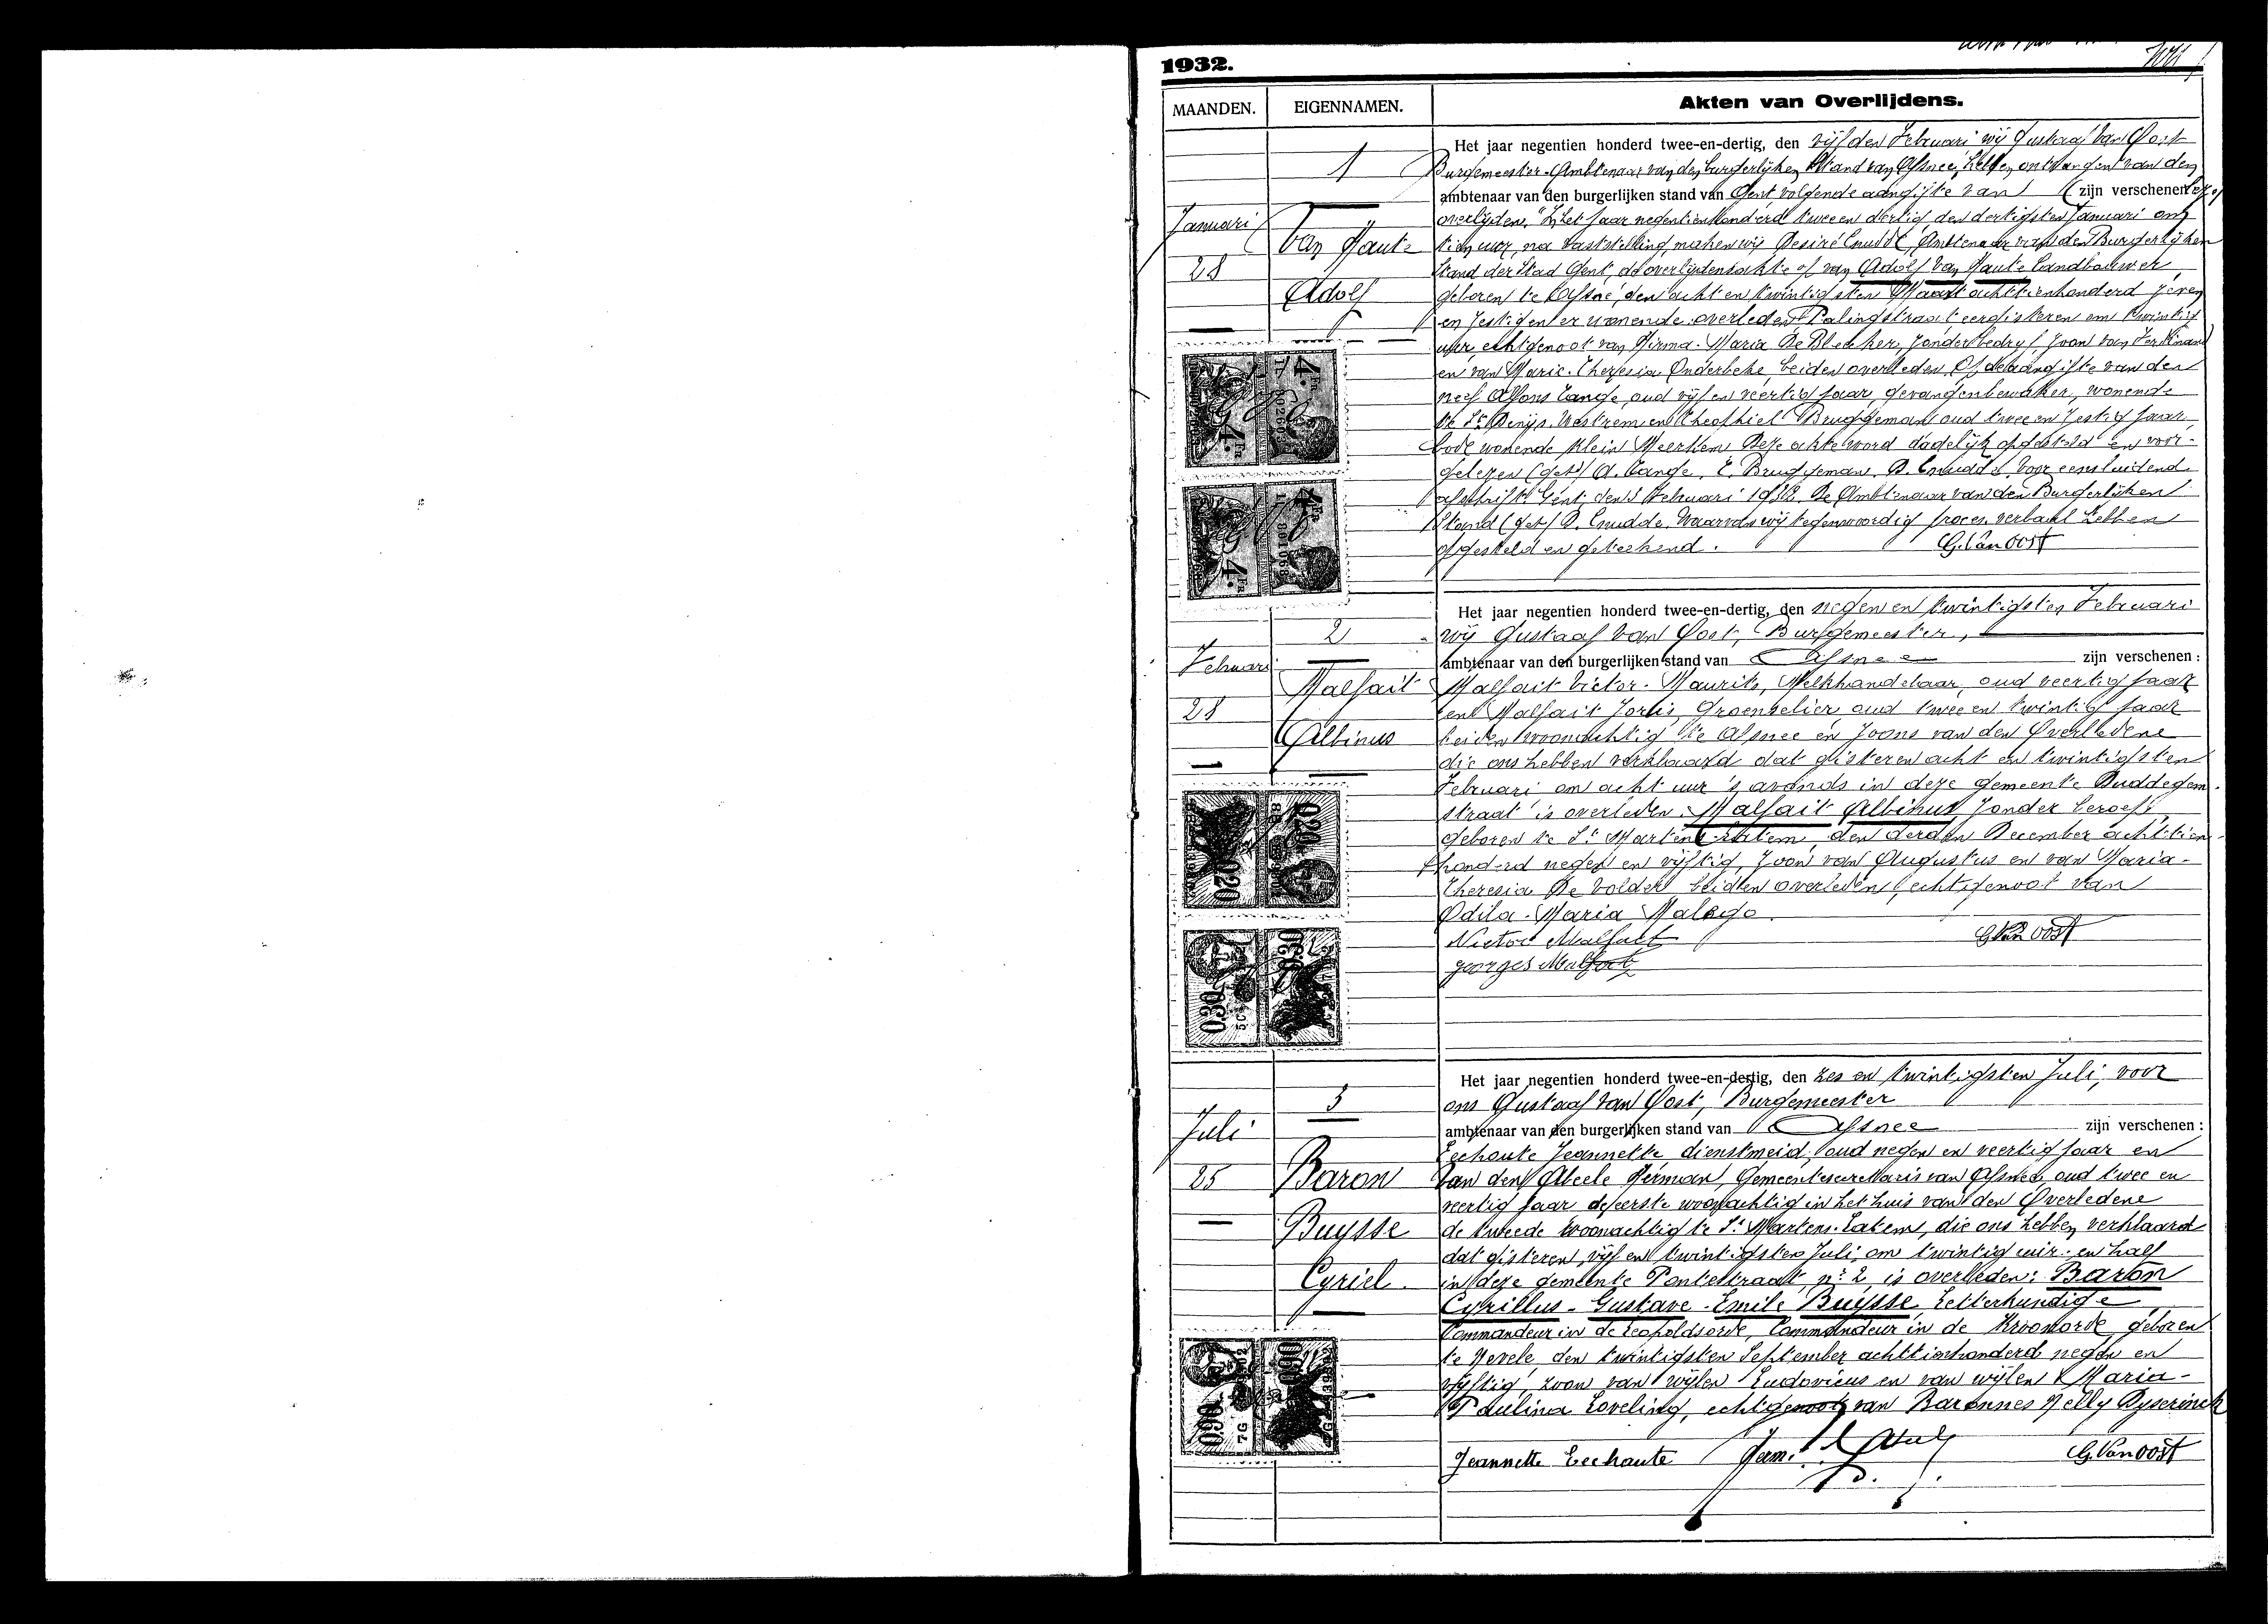 1932.
MAANDEN.
EIGENNAMEN.
Akten van Overlijdens.
1
Januari
28
Van Haute
Adolf
Het jaar negentien honderd twee-en-dertig, den vijfden Februari wij Gustaaf Van Oost
Burgemeester-Ambtenaar van den burgerlijken stand van Afsnee, hebben ontvangen van den
ambtenaar van den burgerlijken stand van Gent volgende aangifte van (zijn verschenen
overlijden. "Het jaar negentienhonderd twee en dertig den dertigsten Januari om
tien uur, na vaststelling, maken wij Desiré Cnudde, Ambtenaar van den Burgerlijken
Stand der Stad Gent, de overlijdensakte op van Adolf Van Haute landbouwer,
geboren te Afsné, den acht en twintigsten Maart achttienhonderd zeven
en zestig en er wonende overleden Palingstraat eergisteren om twintig
uur, echtgenoot van Hirma-Maria De Bleeker, zonder bedrijf zoon van Ferdinand
en van Marie-Theresia Onderbeke beiden overleden. Op de aangifte van den
neef Alfons Tange, oud vijf en veertig jaar gevangenbewaker, wonende
te St Denijs-Westrem en Theophiel Bruggeman oud twee en zestig jaar
bode wonende Klein Meerkem Deze akte word dadelijk opgesteld en voor-
gelezen (get) A. Tange, T. Bruggeman, D. Cnudde. Voor eensluidend
afschrift Gent, den 3 Februari 1932. De Ambtenaar van den Burgerlijken
Stand (get) D. Cnudde. Waarvan wij tegenwoordig proces verbaal hebben
opgesteld en geteekend.
G. Van Oost
4. Fr
4. Fr
2
Februari
28
Malfait
Albinus
Het jaar negentien honderd twee-en-dertig, den negen en twintigsten Februari
wij Gustaaf Van Oost, Burgemeester,
ambtenaar van den burgerlijken stand van Afsnee zijn verschenen :
Malfait Victor-Maurits, Melkhandelaar, oud veertig jaar
en Malfait Joris, Groenselier oud twee en twintig jaar
beiden woonachtig te Afsnee en zoons van den Overledene
die ons hebben verklaard dat gisteren acht en twintigsten
Februari om acht uur 's avonds in deze gemeente Duddegem-
straat is overleden. Malfait Albinus zonder beroep,
geboren te St Martens Latem, den derden December achttien-
honderd negen en vijftig, zoon van Augustus en van Maria-
Theresia De Volder beiden overleden, echtgenoot van
Odila-Maria Malego.
Victor Malfait
G Van Oost
georges Malfait
0.20
0.20
0.30
0.30
3
Juli
25
Baron
Buysse
Cyriel.
Het jaar negentien honderd twee-en-dertig, den zes en twintigsten Juli, voor
ons Gustaaf Van Oost, Burgemeester
ambtenaar van den burgerlijken stand van Afsnee zijn verschenen :
Eechoute Jeannette dienstmeid, oud negen en veertig jaar en
Van den Abeele Herman, Gemeentesecretaris van Afsnee oud twee en
veertig jaar de eerste woonachtig in het huis van den Overledene
de tweede woonachtig te St Martens-Latem, die ons hebben verklaard
dat gisteren, vijf en twintigsten Juli, om twintig uur en half
in deze gemeente Pontestraat, nr 2 is overleden: Baron
Cyrillus-Gustave-Emile Buysse Letterkundige
Commandeur in de Leopoldsorde, Commandeur in de Kroonorde geboren
te Nevele, den twintigsten September achttienhonderd negen en
vijftig, zoon van wijlen Ludovicus en van wijlen Maria-
Paulina Loveling, echtgenoot van Baronnes Nelly Dyserinck
Jeannette Eechaute
G. Van Oost
0.90
0.90